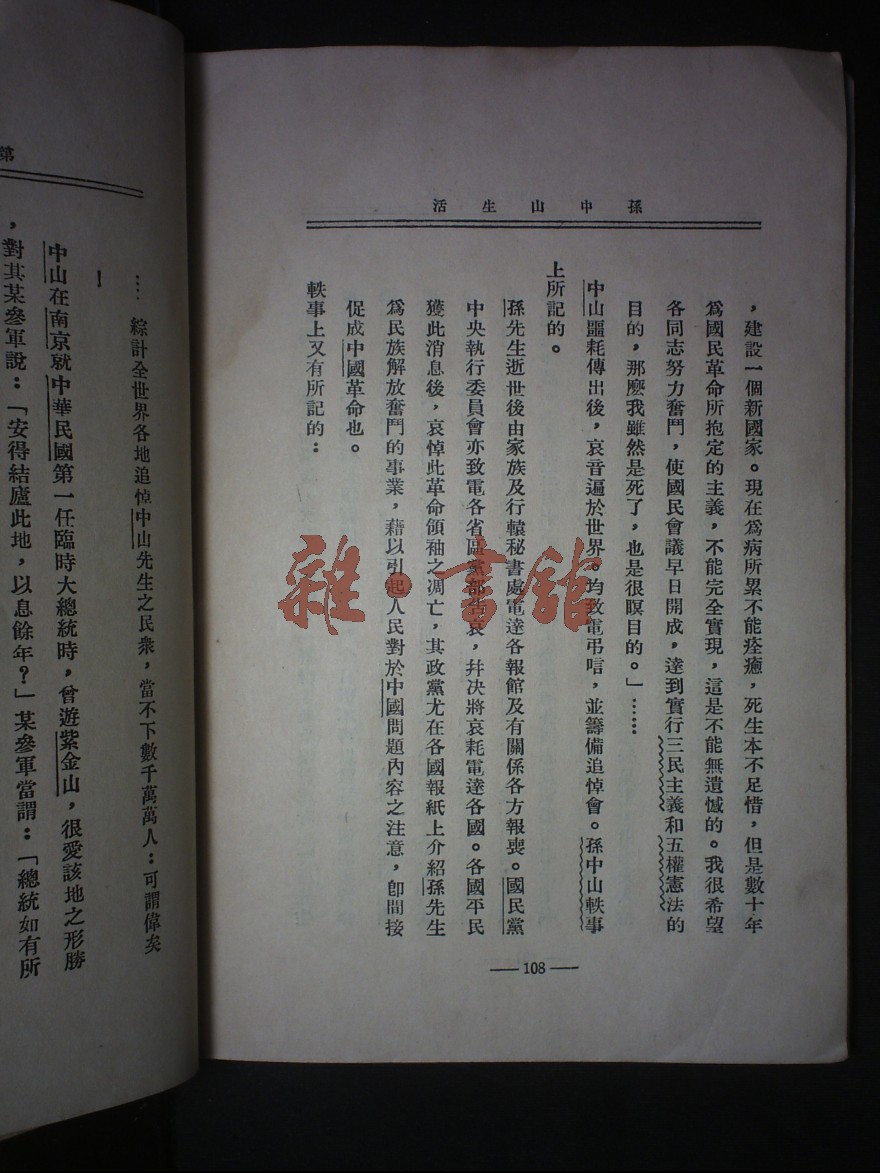 孫中山生活
，建設一個新國家。現在爲病所累不能痊癒，死生本不足惜，但是數十年
爲國民革命所抱定的主義，不能完全實現，這是不能無遺憾的。我很希望
各同志努力奮鬥，使國民會議早日開成，達到實行三民主義和五權憲法的
目的，那麽我雖然是死了，也是很瞑目的。」……
中山噩耗傳出後，哀音遍於世界。均致電弔唁，並籌備追悼會。孫中山軼事
上所記的。
孫先生逝世後由家族及行轅秘書處電達各報館及有關係各方報喪。國民黨
中央執行委員會亦致電各省區黨部告哀，幷决將哀耗電達各國。各國平民
獲此消息後，哀悼此革命領袖之凋亡，其政黨尤在各國報紙上介紹孫先生
爲民族解放奮鬥的事業，藉以引起人民對於中國問題內容之注意，卽間接
促成中國革命也。
軼事上又有所記的：
—108—
第
…. 綜計全世界各地追悼中山先生之民衆，當不下數千萬萬人：可謂偉矣
！
中山在南京就中華民國第一任臨時大總統時，曾遊紫金山，很愛該地之形勝
，對其某參軍說：「安得結廬此地，以息餘年？」某參軍當謂：「總統如有所
雜·書館